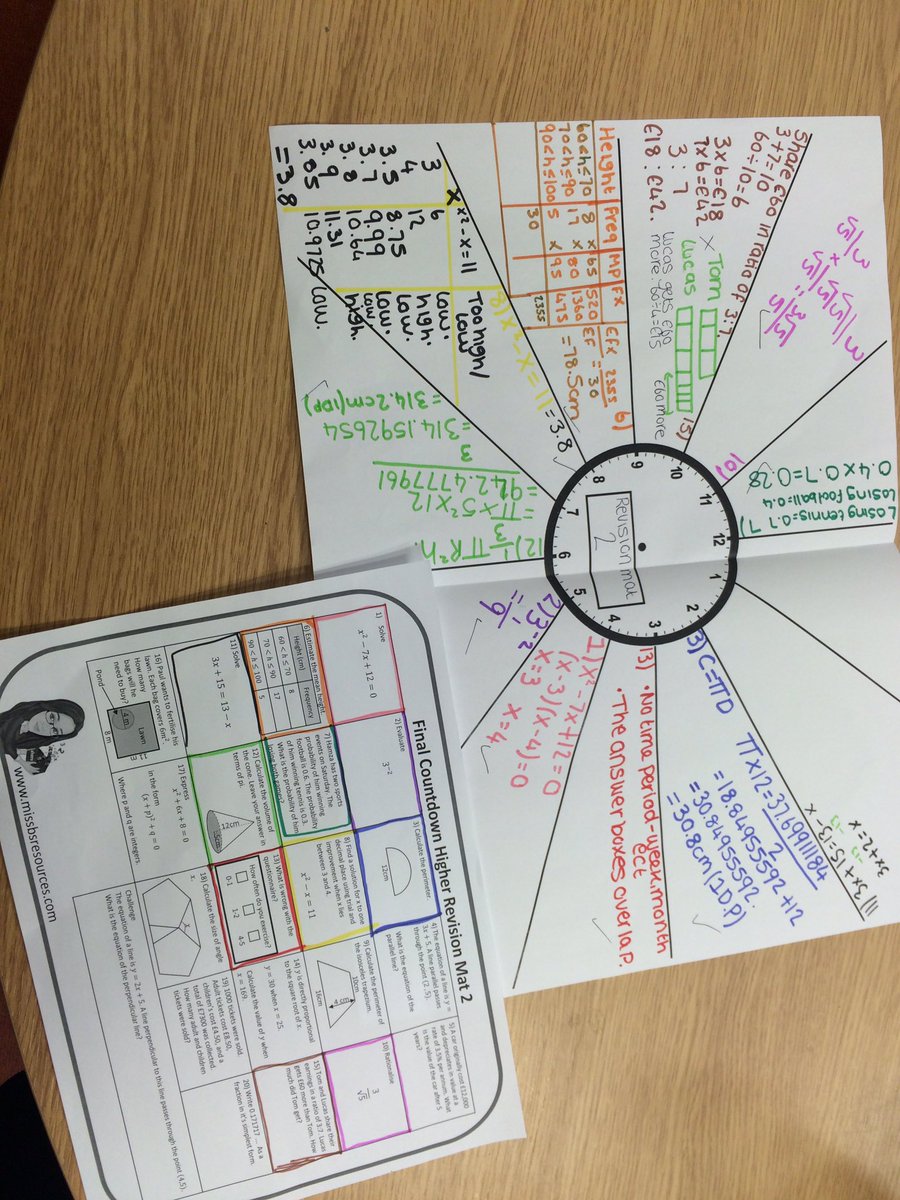 Share £60 in ratio of 3:7.
3+7=10
60÷10=6
3×6=£18
7×6=£42
3 : 7
£18 : £42.
15)
× Tom
Lucas
£60 more
Lucas gets £60
more: 60÷4=£15
10)
7)
Losing tennis=0.7
Losing football=0.4
0.4×0.7=0.28
6)
Height Freq MP FX
60<h≤70 8 ×65 520
70<h≤90 17 ×80 1360
90<h≤100 5 ×95 475
30 2355
EFX
EF = 2355
30
=78.5cm
8) x²-x=11 =3.8
x x²-x=11 Too high/
Low
3 6 Low.
4 12 high.
3.5 8.75 Low.
3.7 9.99 Low.
3.8 10.64 Low
3.9 11.31 high.
3.85 10.9725 Low.
=3.8
12) 1/3 πR²h.
=π×5²×12
3
=942.4777961
3
=314.1592654
=314.2cm(1DP)
Revision mat
2
12
1
2
3
4
5
6
7
8
9
10
11
3) C=πD
π×12=37.69911184
2
=18.84955592+12
=30.84955592.
=30.8cm (1D.P)
11) 3x+15=13-x
13)
• No time period-week, month
ect
• The answer boxes overlap.
x²-7x+12=0
(x-3)(x-4)=0
x=3 x=4
2) 3⁻²
= 1/9
Final Countdown Higher Revision Mat 2
1) Solve
x² − 7x + 12 = 0
2) Evaluate
3⁻²
3) Calculate the perimeter.
12cm
4) The equation of a line is y =
3x + 5. A line parallel passes
through the point (2, 5).
What is the equation of the
parallel line?
5) A car originally cost £12,000
and depreciates in value at a
rate of 3.5% per annum. What
is the value of the car after 5
years?
6) Estimate the mean height
Height (cm) Frequency
60 < h ≤ 70 8
70 < h ≤ 90 17
90 < h ≤ 100 5
7) Hamza has two sports
events on saturday. The
probability of him winning
football is 0.6. The probability
of him winning tennis is 0.3.
What is the probability of him
losing both games?
8) Find a solution for x to one
decimal place using trial and
improvement when x lies
between 3 and 4.
x² − x = 11
9) Calculate the perimeter of
the isosceles trapezium.
10cm
4 cm
16cm
10) Rationalise
3
√5
11) Solve
3x + 15 = 13 − x
12) Calculate the volume of
the cone. Leave your answer in
terms of pi.
12cm
5cm
13) What is wrong with the
questionnaire?
How often do you exercise?
0-1 1-2 4-5
14) y is directly proportional
to the square root of x.
y = 30 when x = 25.
Calculate the value of y when
x = 169.
15) Tom and Lucas share their
earnings in a ratio of 3:7. Lucas
gets £60 more than Tom. How
much did Tom get?
16) Paul wants to fertilise his
lawn. Each bag covers 6m².
How many
bags will he
need to buy?
Lawn
4 m
Pond
8 m
17) Express
x² + 6x + 8 = 0
In the form
(x + p)² + q = 0
Where p and q are integers.
18) Calculate the size of angle
x.
x
19) 1000 tickets were sold.
Adult tickets cost £8.50,
children's cost £4.50, and a
total of £7300 was collected.
How many adult and children
tickets were sold?
20) Write 0.17171? .... As a
fraction in it's simplest form.
Challenge
The equation of a line is y = 2x + 5. A line perpendicular to this line passes through the point (4,5).
What is the equation of the perpendicular line?
www.missbsresources.com